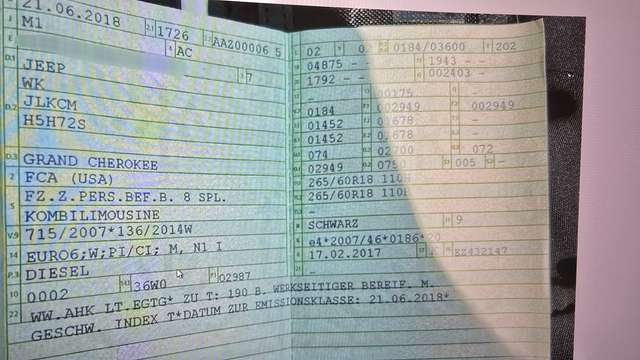 21.06.2018 2.1 1726 2.2 AAZ00006 5
J M1 4 AC
E 3 7
D.1 JEEP
WK
D.2 JLKCM
H5H72S
D.3 GRAND CHEROKEE
2 FCA (USA)
5 FZ.Z.PERS.BEF.B. 8 SPL.
KOMBILIMOUSINE
V.9 715/2007*136/2014W
14 EURO6;W;PI/CI; M, N1 I
P.3 DIESEL
10 0002 14.1 36W0 P.1 02987
22 WW.AHK LT.EGTG* ZU T: 190 B. WERKSEITIGER BEREIF. M.
GESCHW. INDEX T*DATUM ZUR EMISSIONSKLASSE: 21.06.2018*
02 0184/03600 202
04875 - - 1943 - -
1792 - - 002403 - -
- 00175 -
0184 002949 002949
01452 01678 -
01452 -
074 02700 072
02949 005 -
265/60R18 110H
265/60R18 110H
-
SCHWARZ 9
e4*2007/46*0186*20
17.02.2017 K EZ432147
-